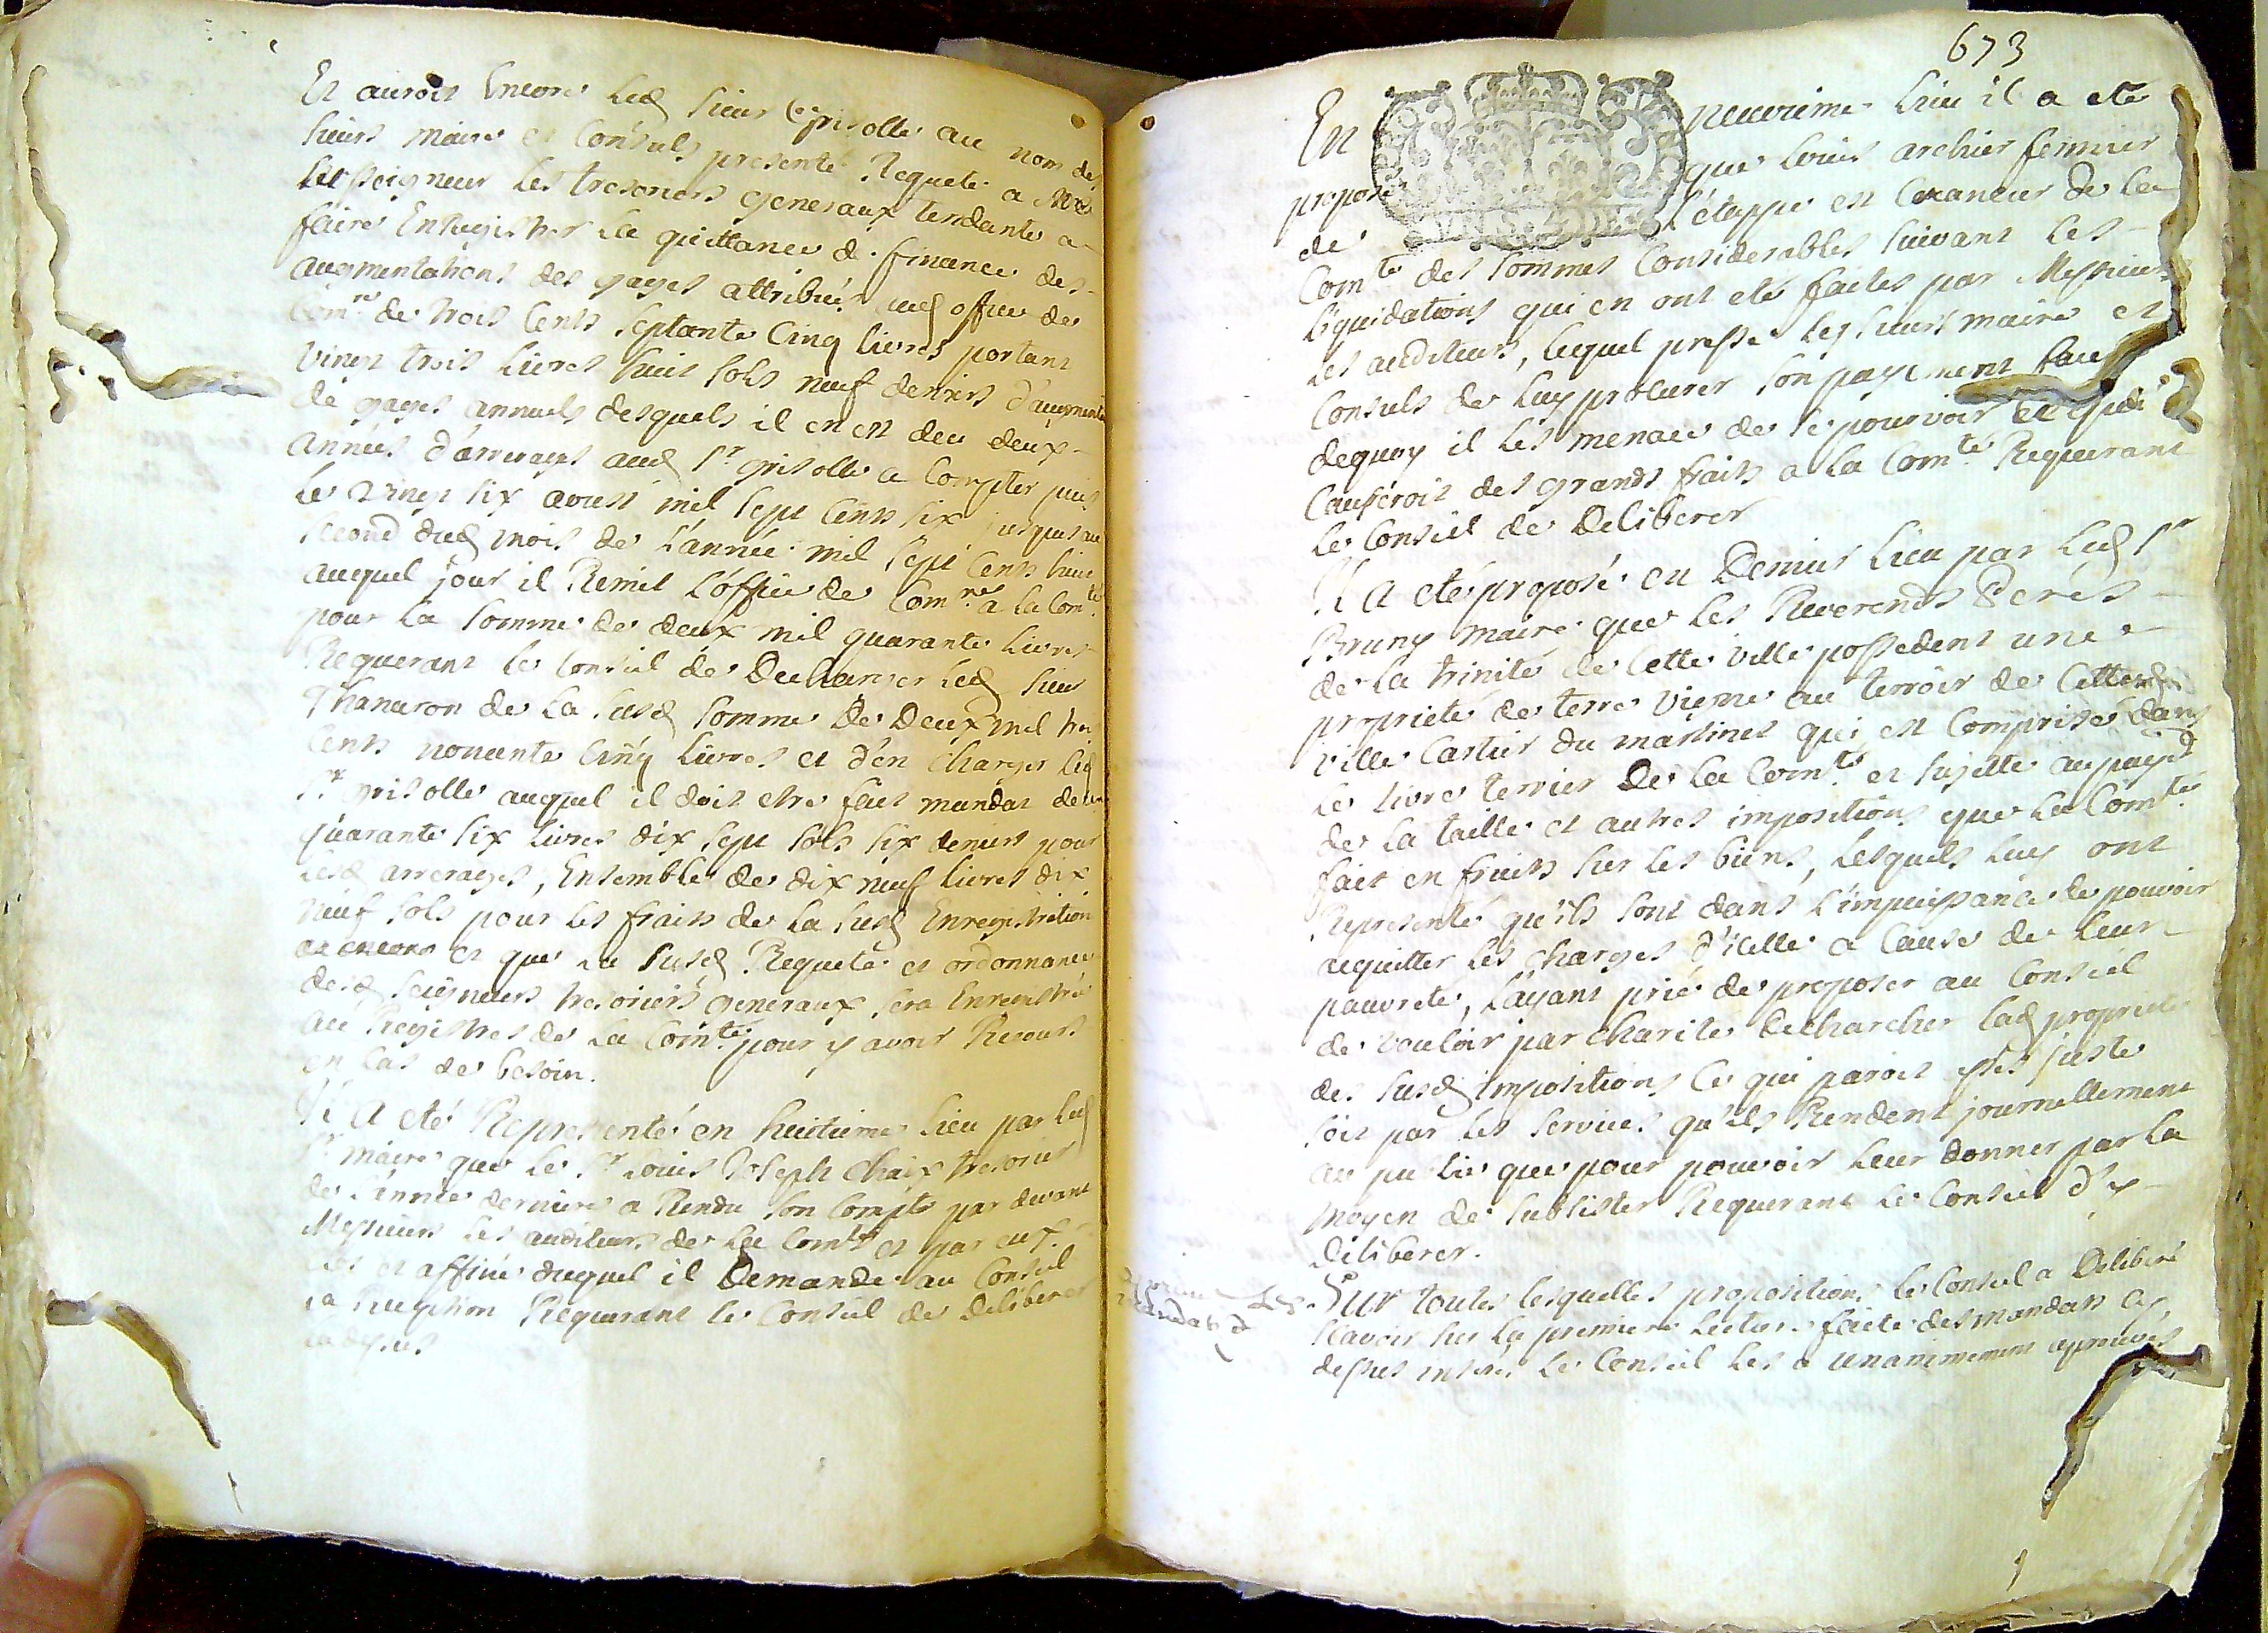 Et auroit Encore led sieur Grisolle au nom des
sieurs maire et Consuls presenté Requete a Mes
les seigneur les tresoriers generaux tendante a
faire Enregistrer la quittance de finance des
augmentations des gages attribués aud office de
Com.re de trois Cents septante Cinq livres portant
vingt trois livres huit sols neuf deniers d'augmenta
de gages annuels desquels il en est deu deux
années d'arrerages aud Sr grisolle a Compter puis
le vingt six aoust mil sept Cents six jusques au
second dud mois de l'année mil sept Cents huit
auquel jour il Remit L'office de Com.re a la Com.té
pour la somme de deux mil quarante livres
Requerant le Conseil de Decharger led sieur
Thaneron de la susd somme De Deux mil trois
Cents nonante Cinq livres et d'en charger led
Sr grisolle auquel il doit etre fait mandat de
quarante six livres dix sept sols six deniers pour
lesd arrerages, Ensemble de dix neuf livres dix
neuf sols pour les fraits de la susd Enregistration
et que la susd Requete et ordonnance
desd seigneurs tresoriers generaux sera Enregistrée
au Registres de la Com.té pour y avoir Recours
en Cas de besoin.
Il A eté Representé en huitieme lieu par led
Sr maire que le Sr Louis Joseph Chaix tresorier
de L'année derniere a Rendu son Compte par devant
Messieurs les auditeurs de la Com.té et par eux
et affiné duquel il Demande au Conseil
la Reception Requerant le Conseil de Deliberer
la dessus
673
En neuvieme lieu il a eté
proposé que Louis archier fermier
de L'étappe est Creancier de la
Com.té des sommes Considerables suivant les
liquidations qui en ont eté faites par Messieurs
les auditeurs, lequel presse les sieurs maire et
Consuls de luy procurer son payement faute
dequoy il les menace de se pourvoir ce qui
Causeroit des grands fraits a la Com.té Requerant
le Conseil de Deliberer
Il A eté proposé en Dernier lieu par led Sr
Bruny maire que les Reverends Peres
de la trinité de Cette ville possedent une
proprieté de terre vigne au terroir de Cette
ville Cartier du martinet qui est Comprise dans
le livre terrier De la Com.té et sujette au payt
de la taille et autres impositions que la Com.té
fait en fruits sur les biens, lesquels luy ont
Representé qu'ils sont dans L'impuissance de pouvoir
acquitter les charges d'icelle a Cause de leur
pauvreté, L'ayant prié de proposer au Conseil
de vouloir par charité decharcher lad proprieté
des susd impositions Ce qui paroit tres juste
soit par les services qu'ils Rendent journellement
au public que pour pouvoir leur donner par la
moyen de subsister Requerant le Conseil d'y
deliberer.
Sur toutes lesquelles propositions le Conseil a Deliberé
scavoir sur la premiere lecture faite des mandats cy
dessus inserés le Conseil les a unanimement aprouvés